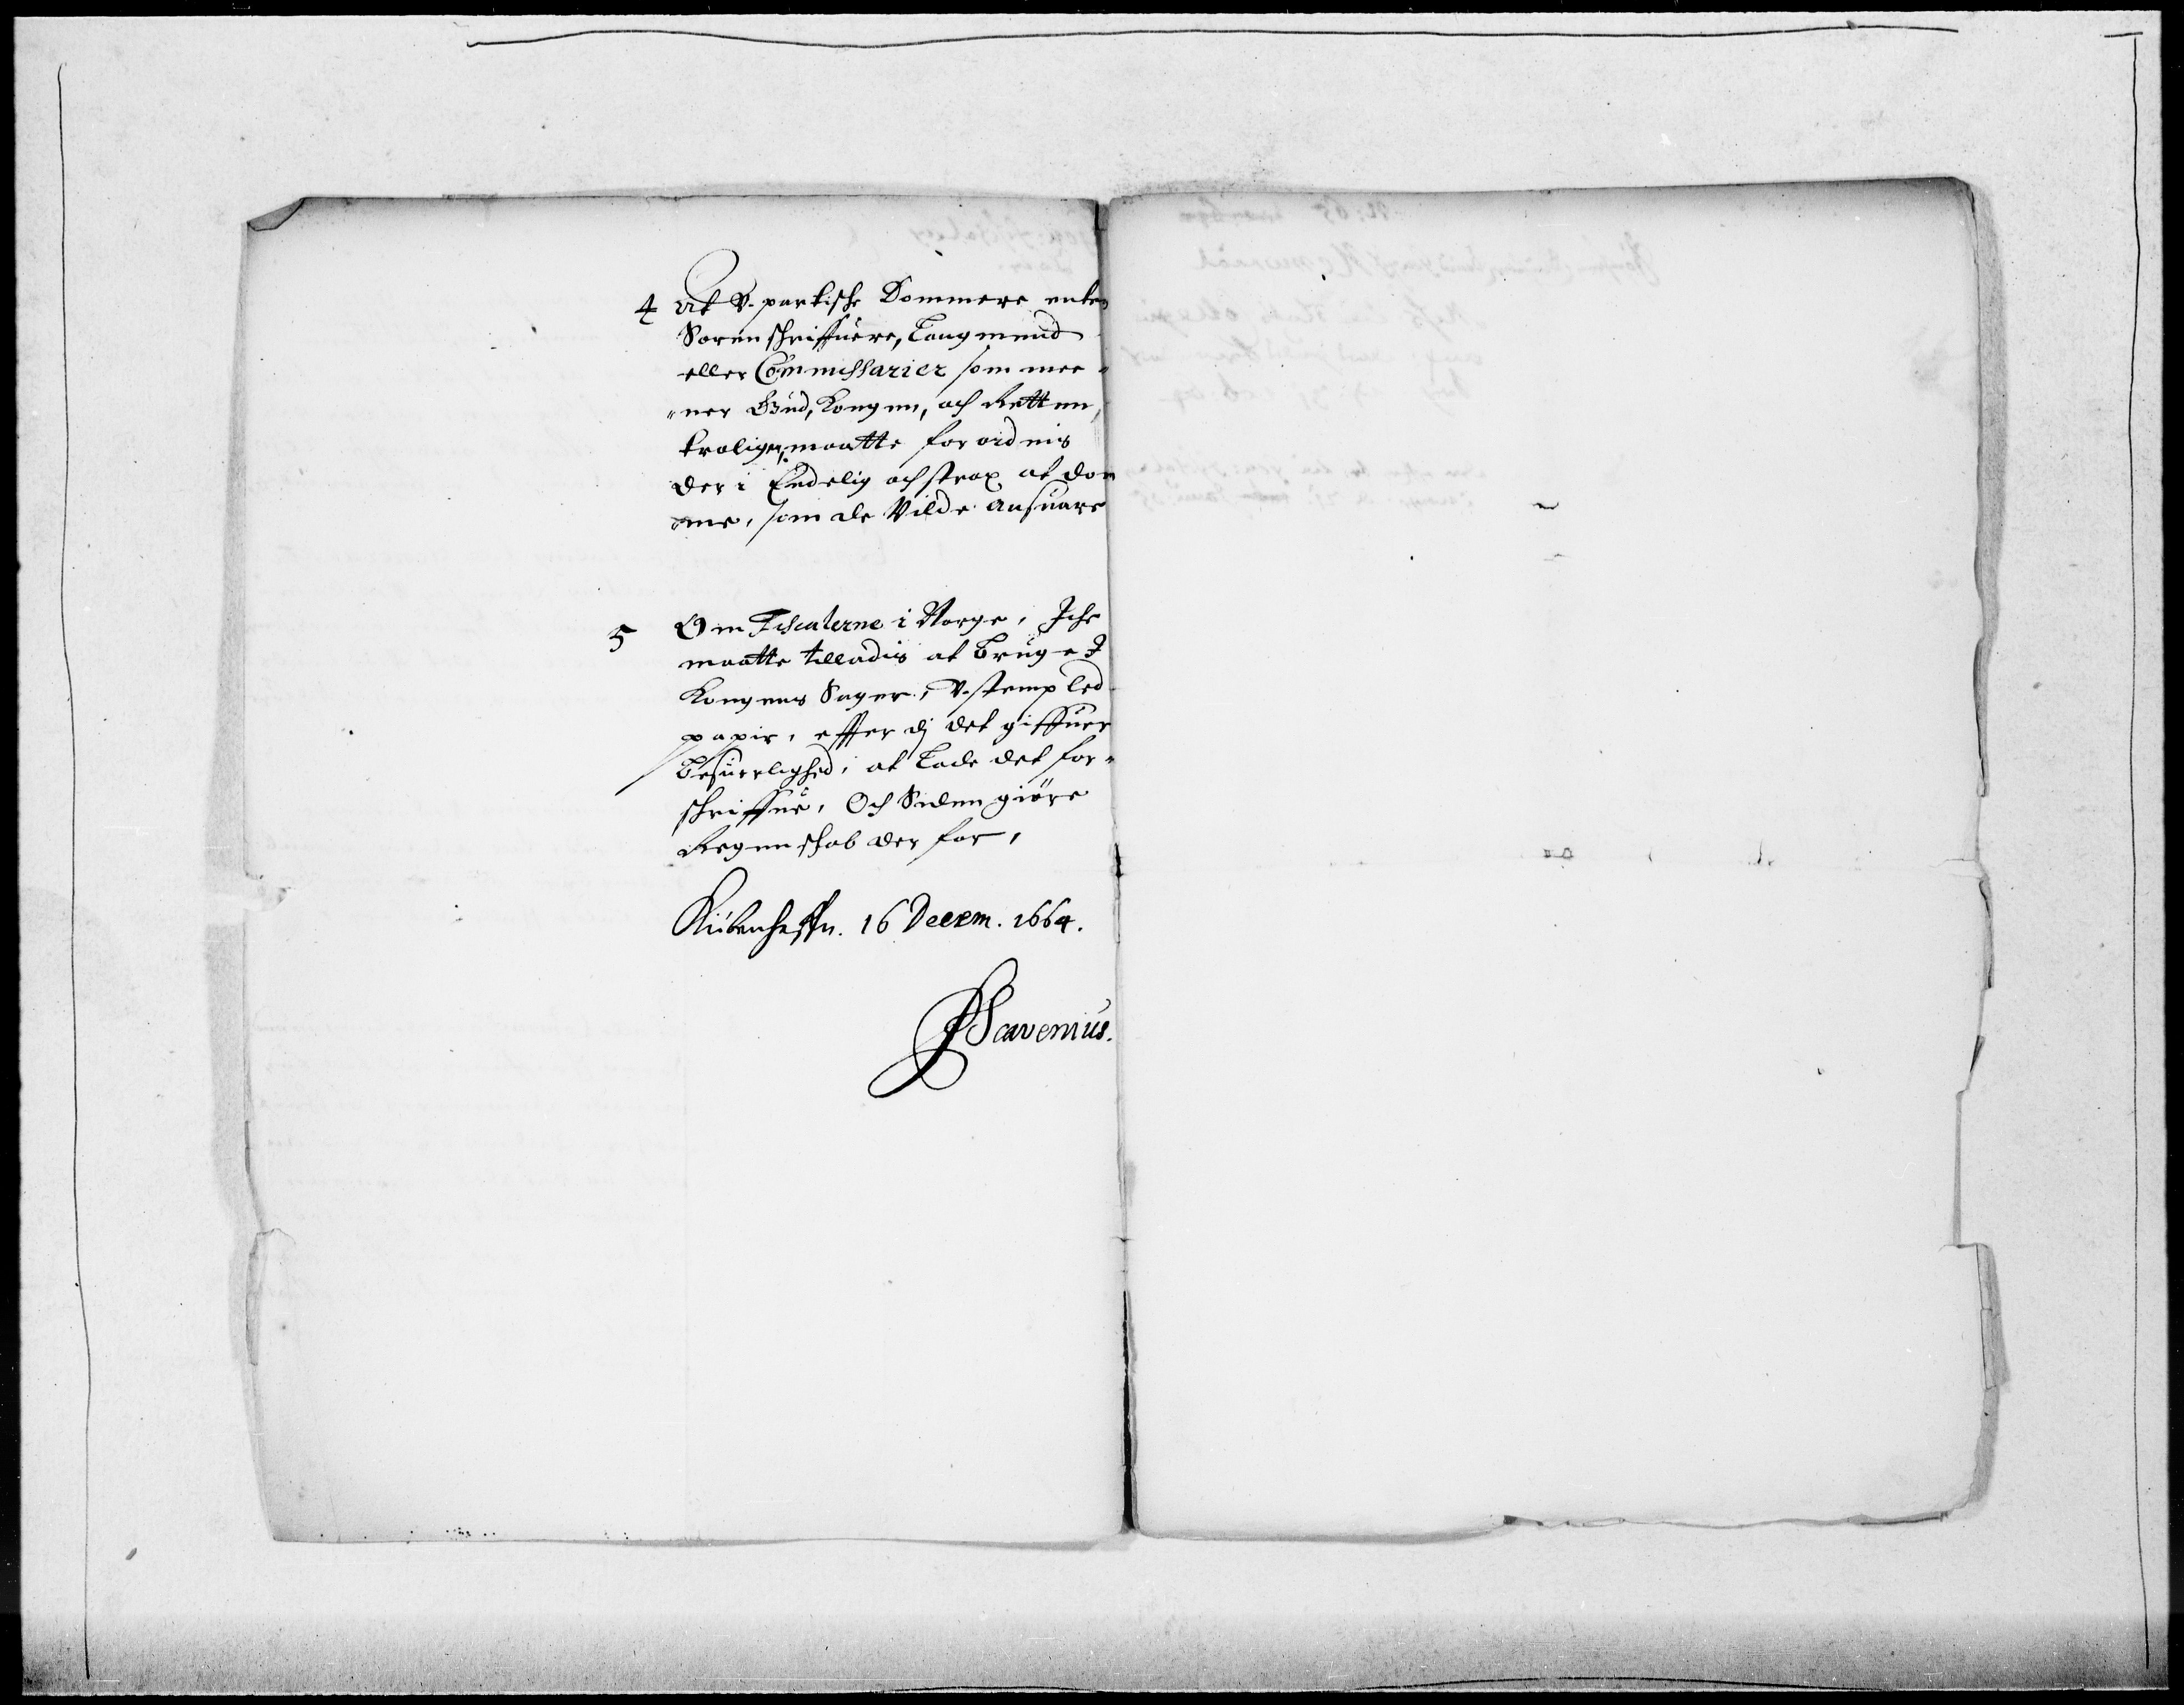 4 At V-partische Dommere enten
Sorenschriffuere, Laugmend
eller Commissarier som mee-
-ner Gud, Kongen, och Retten,
troligen, maatte forordnis
der i Endelig och strax at dom
me, som de Vilde ansuare
5 Om Fischalerne i Norge, Iche
maatte tilladis at bruge I
Kongens Sager, V-stempled
papir, effter dj det giffuer
besuerlighed, at Lade det for-
schriffue, Och Siden giöre
Regenschab der for,
Kiübenhaffn. 16 Decem. 1664.
PScavenius.